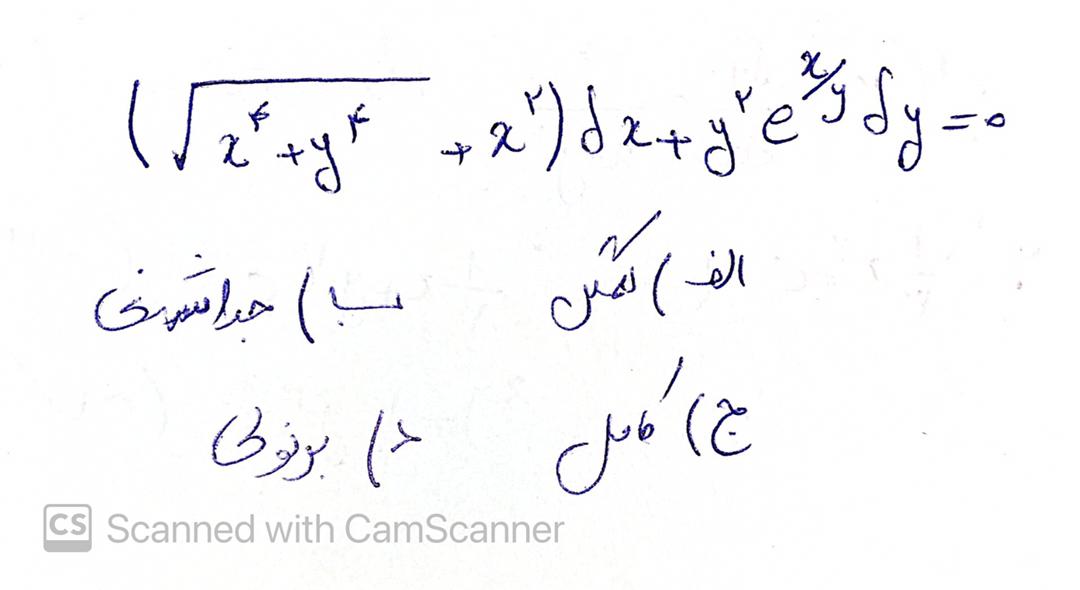 (√(x⁴+y⁴) + x²) dx + y² e^(x/y) dy = ۰
الف) همگن ب) جداشدنی
ج) کامل د) برنولی
CS Scanned with CamScanner